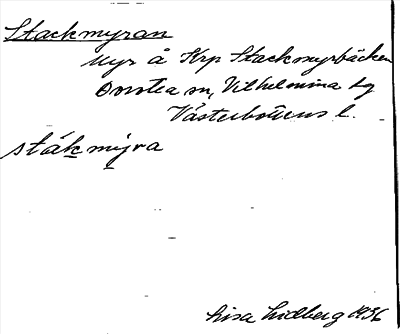 Stackmyran
Myr å Krp Stackmyrbäcken
Dorotea sn, Vilhelmina tg
Västerbottens l.
ståkmýra
Lisa Lidberg 1936